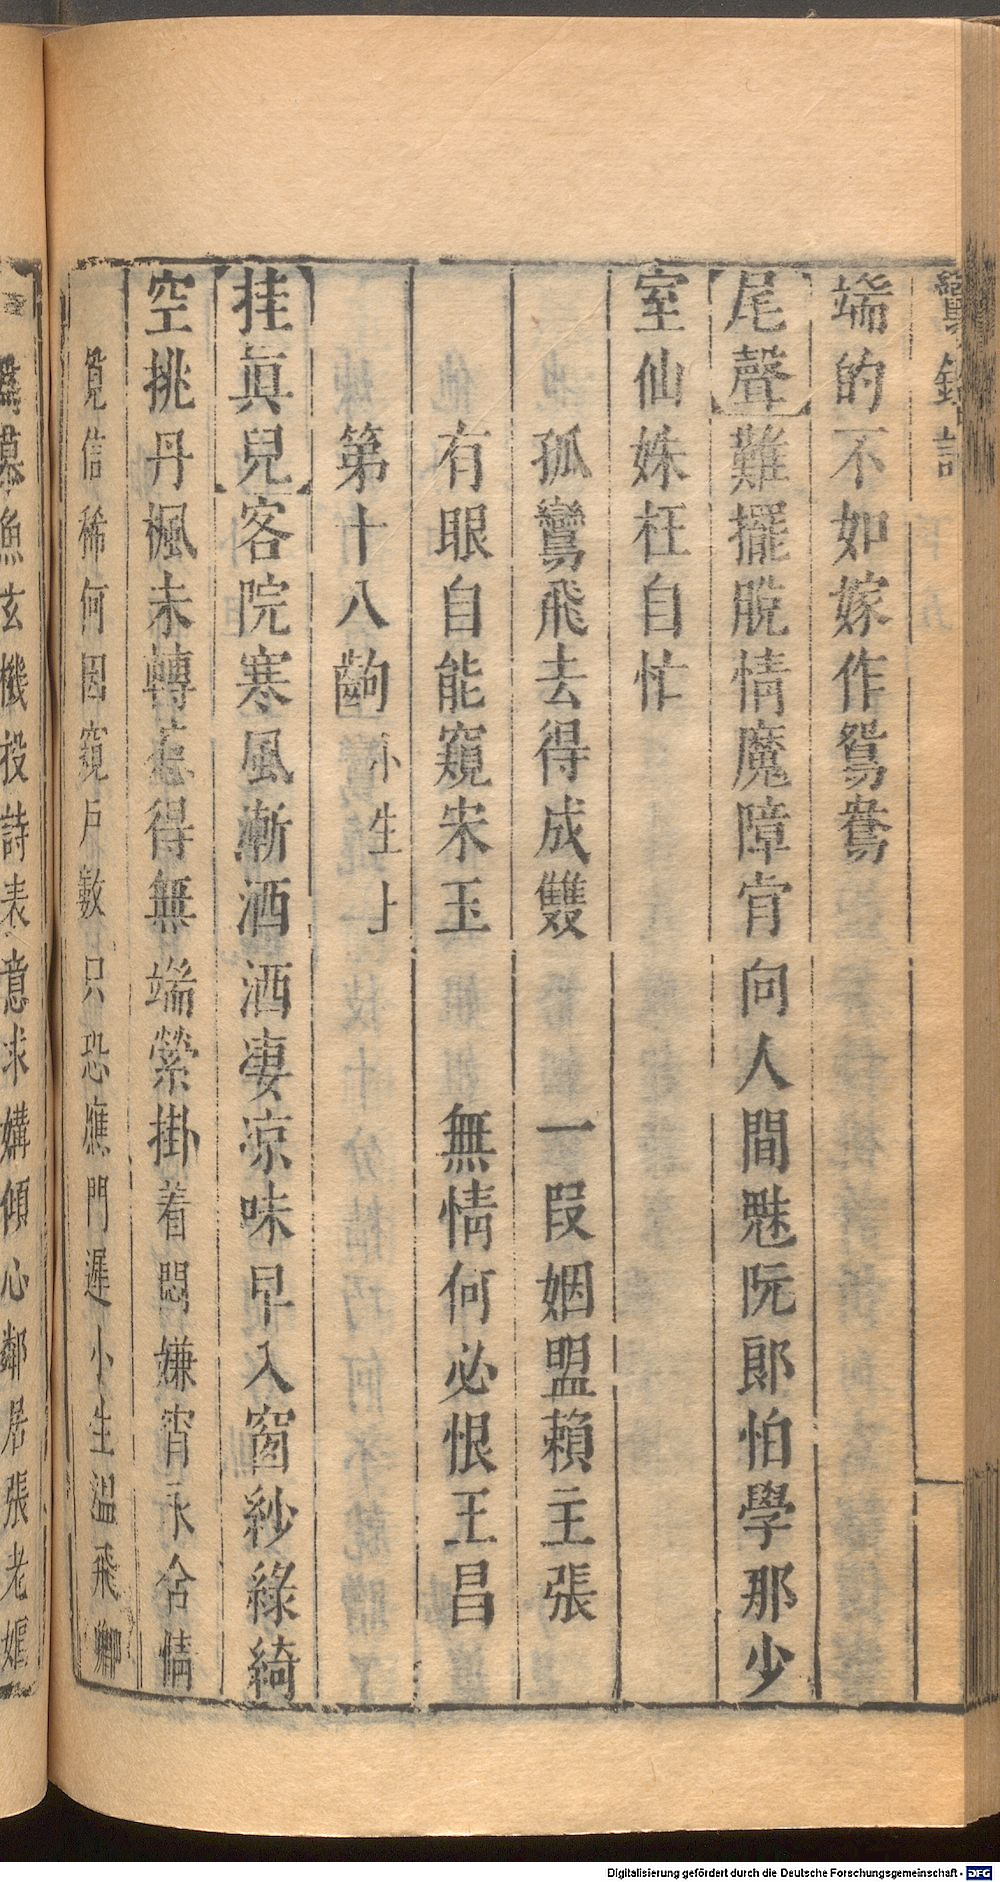 鸞鎞記
端的不如嫁作鴛鴦
【尾聲】難擺脫情魔障肯向人間魅阮郎怕學那少
室仙姝枉自忙
孤鸞飛去得成雙 一段姻盟賴主張
有眼自能窺宋玉 無情何必恨王昌
第十八齣 小生上
【挂眞兒】客院寒風漸洒洒凄凉味早入窗紗綠綺
空挑丹楓未轉惹得無端縈掛着悶嫌宵永含情
覓信稀何因窺戶數只恐應門遲小生溫飛卿
爲慕魚玄機投詩表意求媾傾心鄰居張老嫗
Digitalisierung gefördert durch die Deutsche Forschungsgemeinschaft - DFG